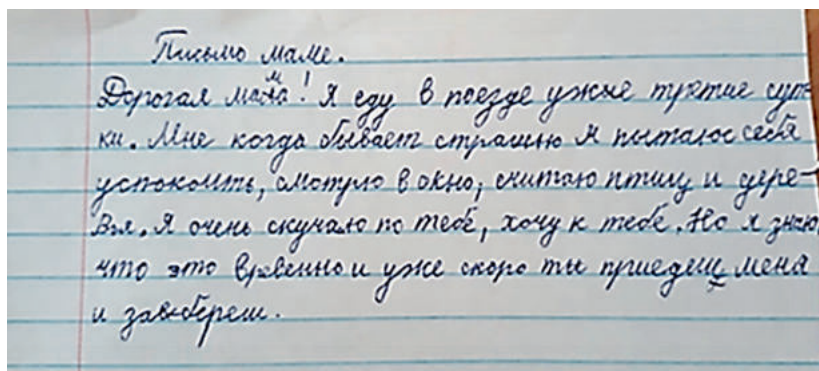 Письмо маме.
Дорогая мама! Я еду в поезде ужые третие сут-
ки. Мне когда бывает страшно я пытаюс себя
успокоить, смотрю в окно, считаю птицу и дере-
вья. Я очень скучаю по тебе, хочу к тебе. Но я знаю,
что это времено и уже скоро ты приедеш меня
и заебереш.